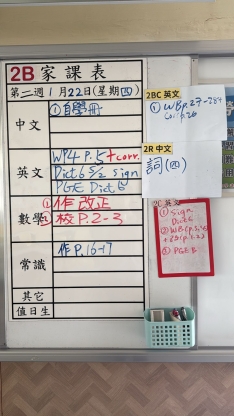 2B 家課表
第二週 1月22日(星期四)
中文
①自學冊
英文
WP4 P.5+corr.
Dict 6 5/2 sign
PGE Dict 6
數學
①作 改正
②校 P.2-3
常識
作 P.16-17
其它
值日生
2BC 英文
① WB p.27-28+
2R 中文
詞(四)
2C 英文
① Sign
Dict 6
③ PGE 6